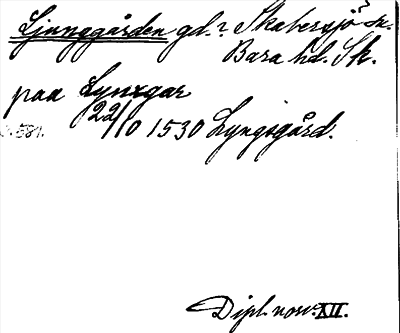 Ljunggården gd.? Skabersjö? sn.
Bara hd. Sk.
paa Lynxgar
22/10 1530 Lyngsgård.
s. 581.
Dipl. norv. XII.